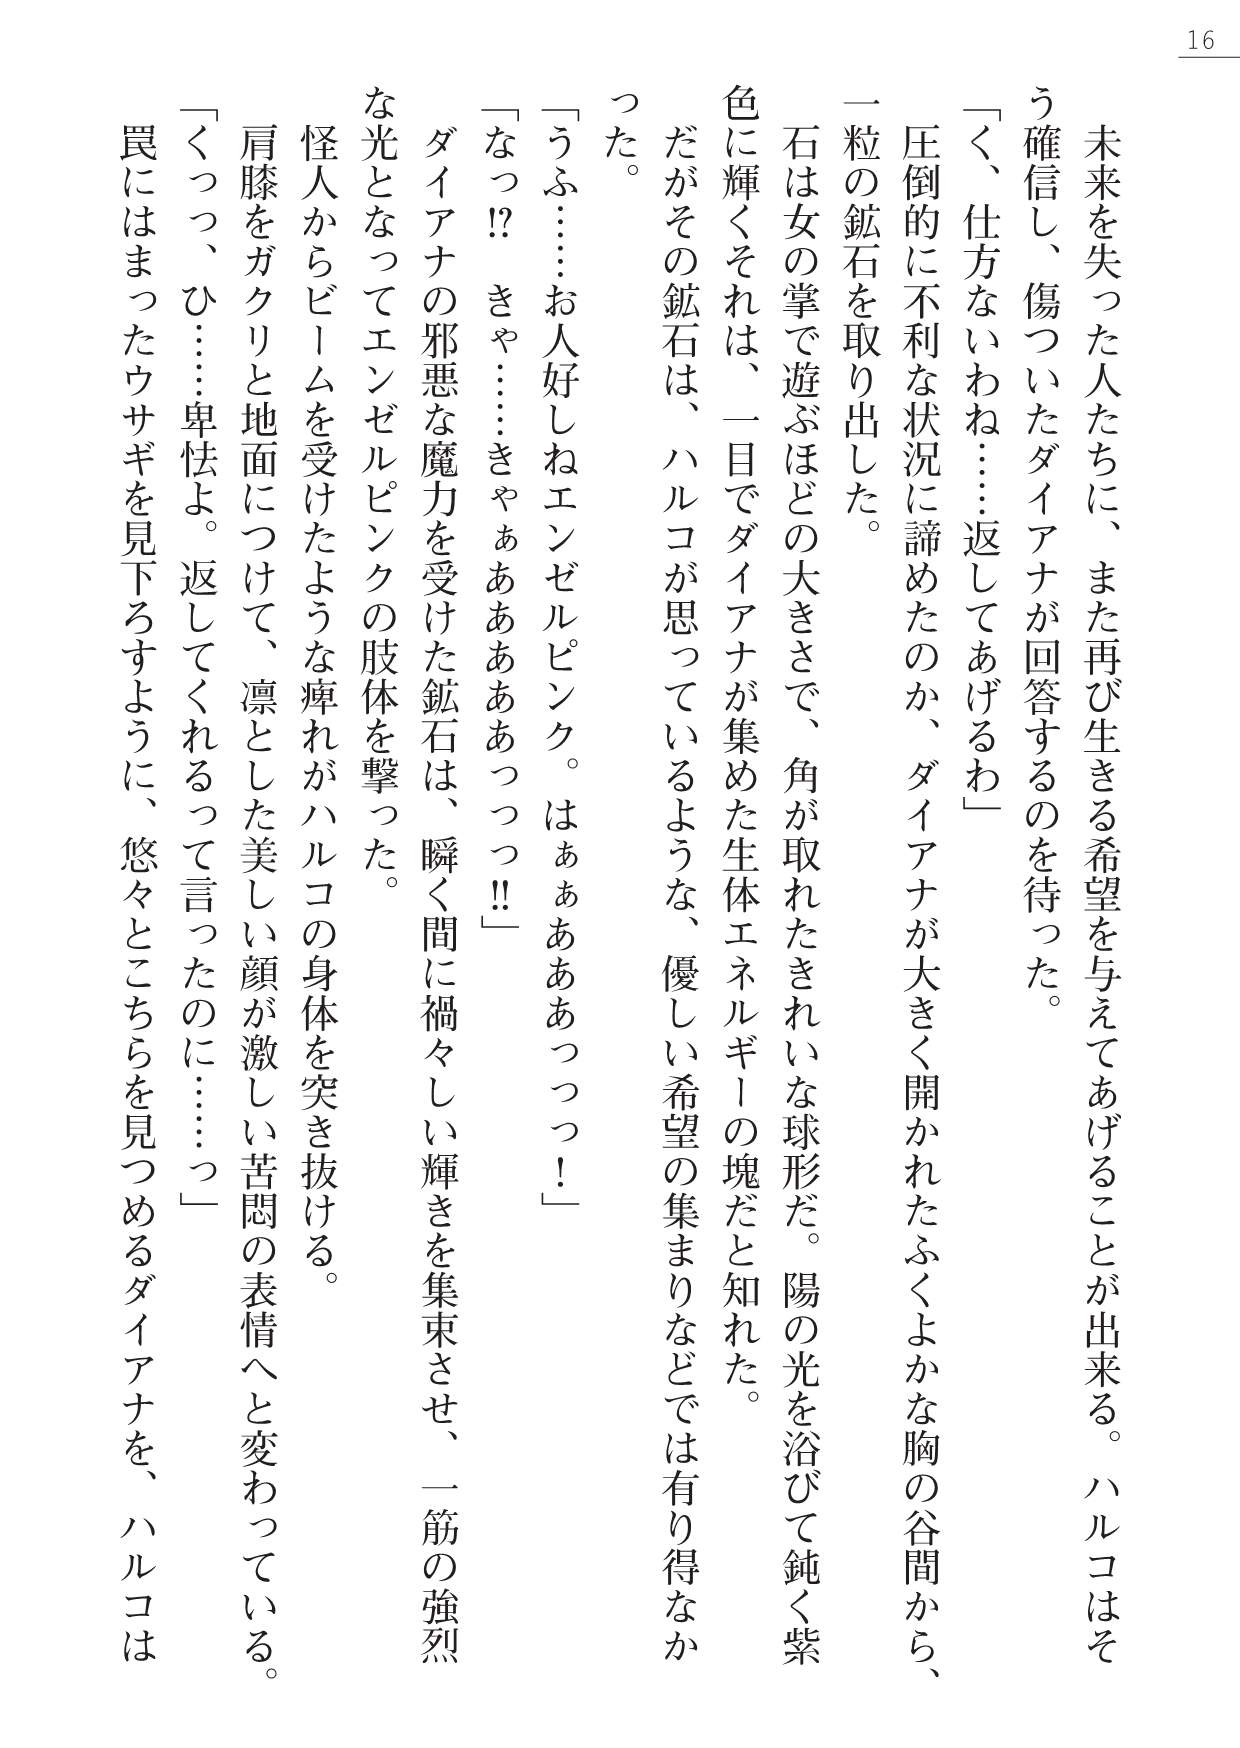 16
　未来を失った人たちに、また再び生きる希望を与えてあげることが出来る。ハルコはそ
う確信し、傷ついたダイアナが回答するのを待った。
「く、仕方ないわね……返してあげるわ」
　圧倒的に不利な状況に諦めたのか、ダイアナが大きく開かれたふくよかな胸の谷間から、
一粒の鉱石を取り出した。
　石は女の掌で遊ぶほどの大きさで、角が取れたきれいな球形だ。陽の光を浴びて鈍く紫
色に輝くそれは、一目でダイアナが集めた生体エネルギーの塊だと知れた。
　だがその鉱石は、ハルコが思っているような、優しい希望の集まりなどでは有り得なか
った。
「うふ……お人好しねエンゼルピンク。はぁぁあああっっっ！」
「なっ!?　きゃ……きゃぁあああああっっっ!!」
　ダイアナの邪悪な魔力を受けた鉱石は、瞬く間に禍々しい輝きを集束させ、一筋の強烈
な光となってエンゼルピンクの肢体を撃った。
　怪人からビームを受けたような痺れがハルコの身体を突き抜ける。
　肩膝をガクリと地面につけて、凛とした美しい顔が激しい苦悶の表情へと変わっている。
「くっっ、ひ……卑怯よ。返してくれるって言ったのに……っ」
　罠にはまったウサギを見下ろすように、悠々とこちらを見つめるダイアナを、ハルコは